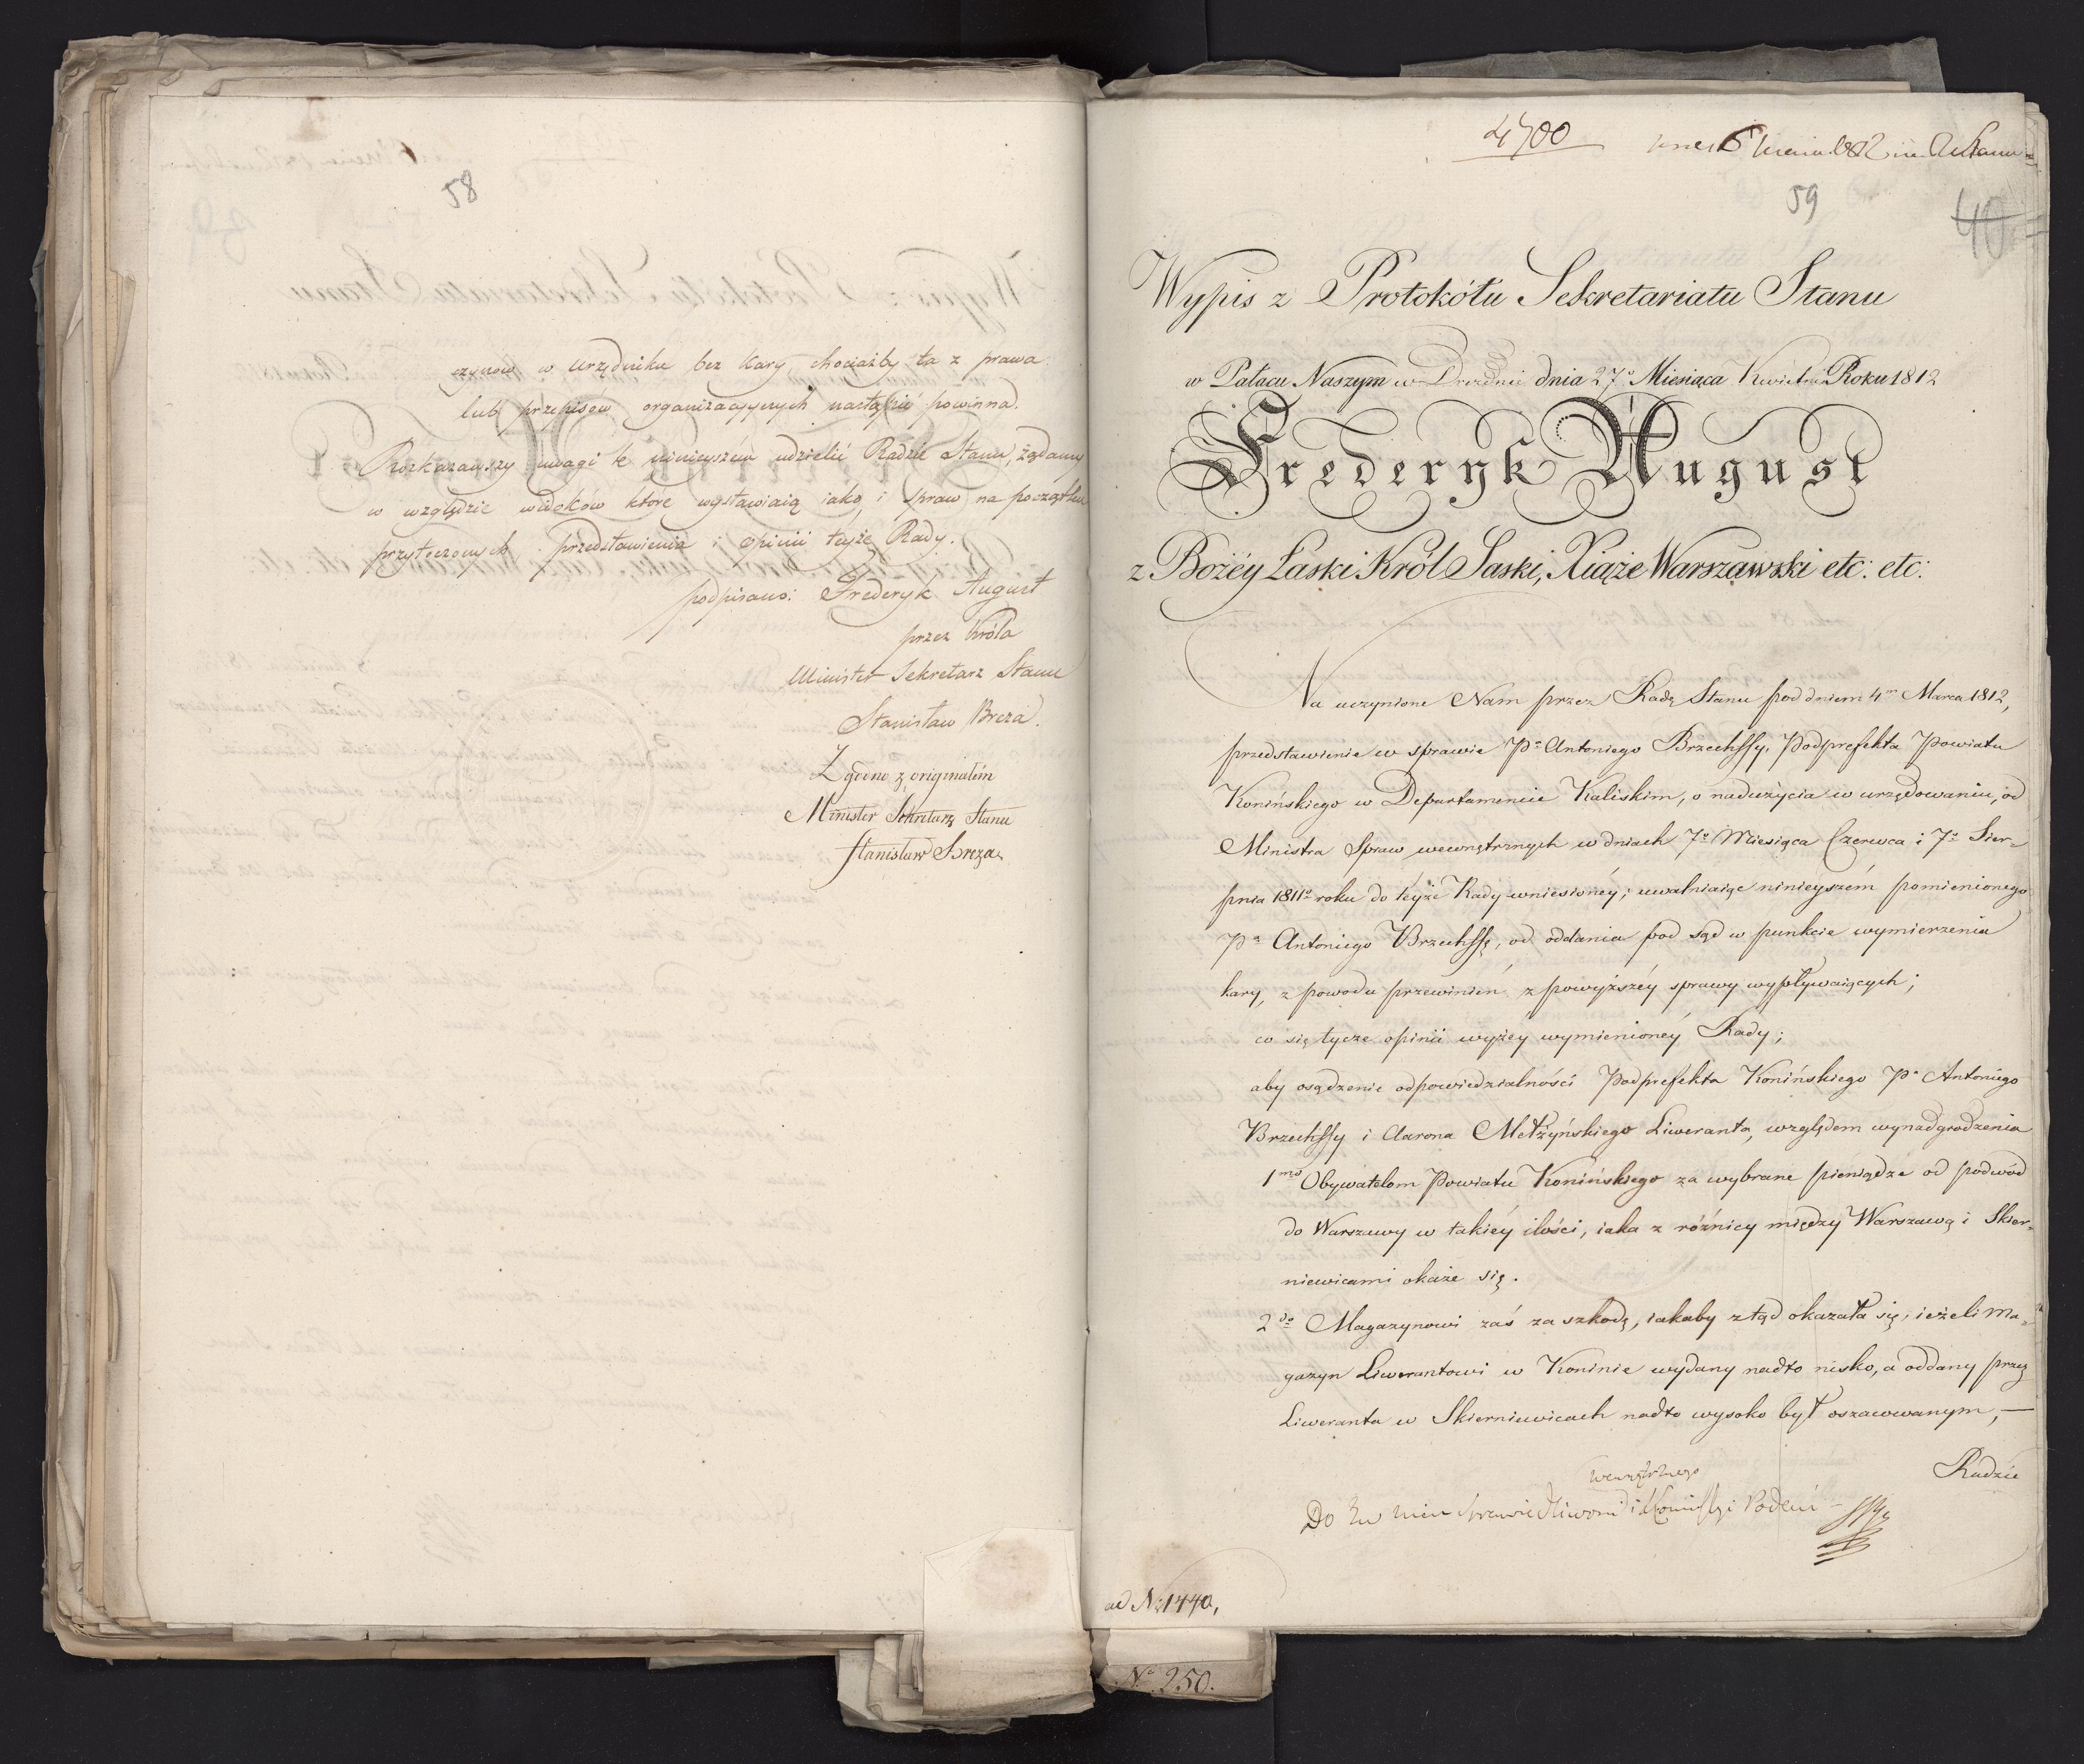 58
czynów w urzędniku bez kary, chociażby ta z prawa
lub przepisow organizacyynych nastąpić powinna.
Rozkazawszy uwagi te ninieyszém udzielić Radzie Stanu, żądamy
w względzie widoków które wystawiaią iako i spraw na początku
przytoczonych przedstawienia i opinii teyże Rady.
podpisano: Frederyk August
przez Króla
Minister Sekretarz Stanu
Stanisław Breza.
Zgodno z originałém
Minister Sekretarz Stanu
Stanisław Breza
4700
1812
59
40
Wypis z Protokółu Sekretariatu Stanu
w Pałacu Naszym w Dreźnie dnia 27o Miesiąca Kwietnia Roku 1812
Frederyk August
z Bożéy Łaski Król Saski, Xiąże Warszawski etc: etc:
Na uczynione Nam przez Radę Stanu pod dniem 4m Marca 1812,
przedstawienie w sprawie Pa Antoniego Brzechffy, Podprefekta Powiatu
Konińskiego w Departamencie Kaliskim, o nadużycia w urzędowaniu, od
Ministra Spraw wewnętrznych w dniach 7o Miesiąca Czerwca i 7o Sier=
pnia 1811o roku do téyże Rady wniesionéy; uwalniaiąc ninieyszém pomienionego
Pa Antoniego Brzechffę, od oddania pod sąd w punkcie wymierzenia
kary, z powodu przewinień z powyższéy sprawy wypływaiących;
co się tycze opinii wyżey wymienionéy Rady;
aby osądzenie odpowiedzialności Podprefekta Konińskiego Pa Antoniego
Brzechffy i Aarona Mełżyńskiego Liweranta, względem wynadgrodzenia
1mo Obywatelom Powiatu Konińskiego za wybrane pieniądze od podwód
do Warszawy w takiéy ilości, iaka z różnicy między Warszawą i Skier=
niewicami okaże się.
2do Magazynowi zaś za szkodę, iakaby ztąd okazała się, ieżeli Ma=
gazyn Liwerantowi w Koninie wydany nadto nisko, a oddany przez
Liweranta w Skierniewicach nadto wysoko był oszacowanym, —
Radzie
wewnętrznego
Do
ad No 1440,
No 250.